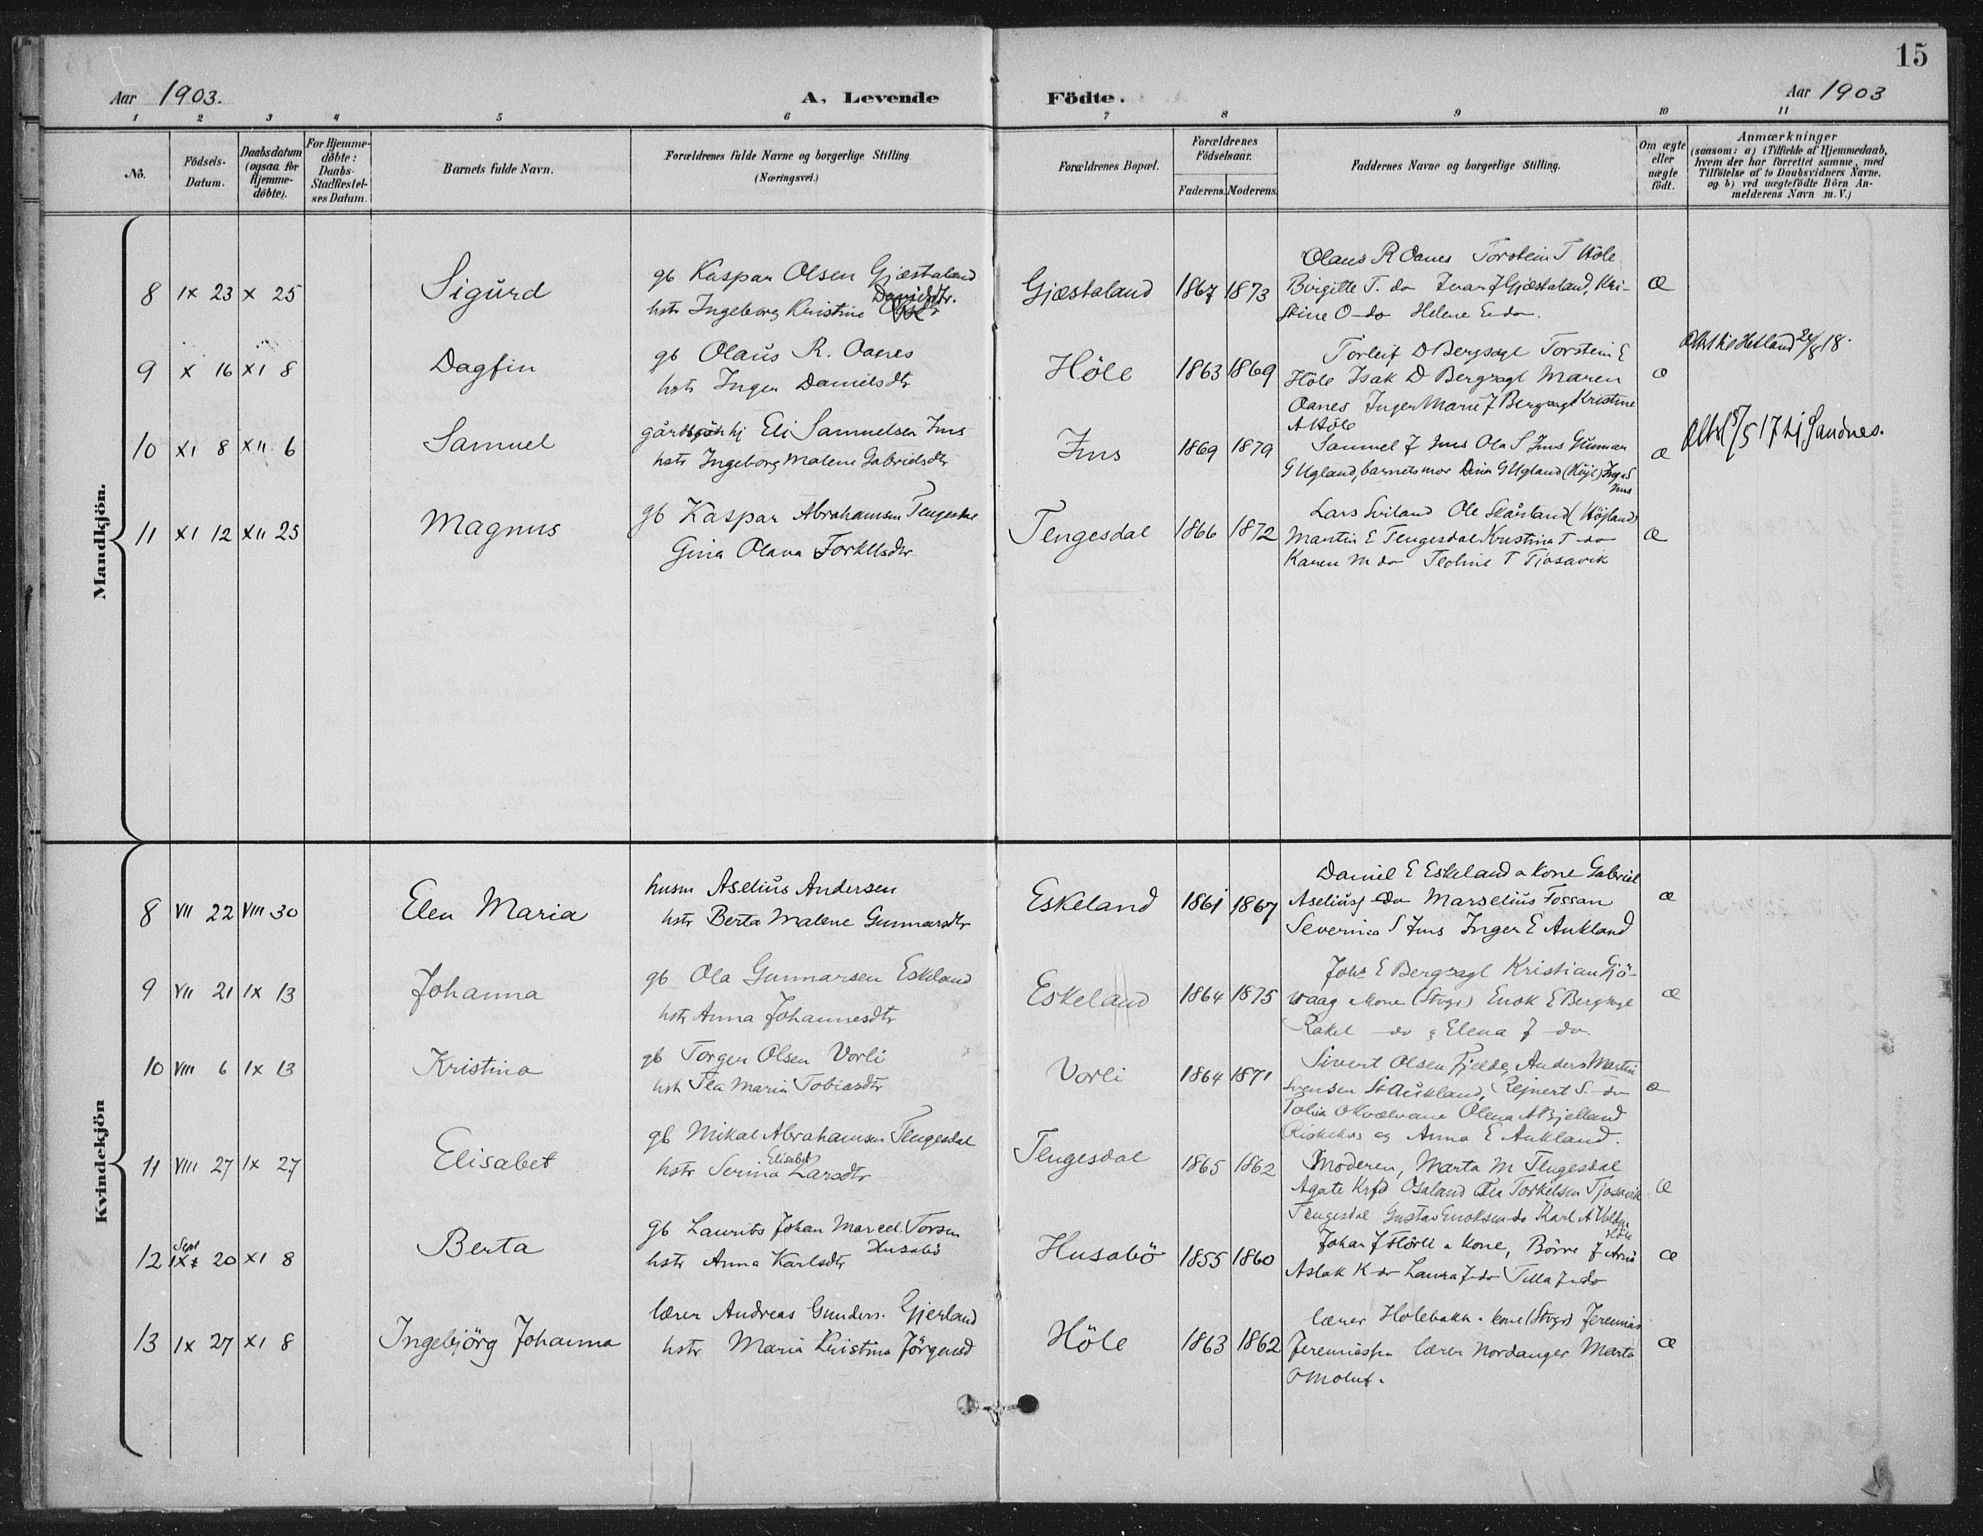 15
Aar 1903.
A. Levende Födte.
Aar 1903
1 2 3 4 5 6 7 8 9 10 11
No.
Födsels-
Datum.
Daabsdatum
(ogsaa for
Hjemme-
döbte).
For Hjemme-
döbte:
Daabs-
Stadfæstel-
ses Datum.
Barnets fulde Navn.
Forældrenes fulde Navne og borgerlige Stilling
(Næringsvei.)
Forældrenes Bopæl.
Forældrenes
Födselsaar.
Faderens. Moderens.
Faddernes Navne og borgerlige Stilling.
Om ægte
eller
uægte
födt.
Anmærkninger
(saasom: a) i Tilfælde af Hjemmedaab,
hvem der har forrettet samme, med
Tilföielse af to Daabsvidners Navne,
og b) ved uægtefödte Börn An-
melderens Navn m. V.)
Mandkjön.
8 IX 23 X 25 Sigurd
gb Kaspar Olsen Gjæstaland
hstr Ingeborg Kristine Danielsdtr.
Gjæstaland 1867 1873
Olaus R Oanes Torstein T Höle
Birgitte T. do Ivar J Gjæstaland, Kri-
stine O do Helene E do.
Æ
9 X 16 XI 8 Dagfin
gb Olaus R. Oanes
hstr Inger Danielsdtr
Höle 1863 1869
Torleif D Bergsagl Torstein E
Höle Isak D Bergsagl Maren
Oanes Inger Marie J Bergsagl Kristine
A Höle
æ
Hetland 18.
10 XI 8 XII 6 Samuel
Eli Samuelsen Ims
hstr Ingeborg Malene Gabrielsdtr
Ims 1869 1879
Samuel J Ims Ola S Ims Gunnar
G Ugland, barnets mor Dina G Ugland Inga S
Ims
æ
17 Sandnes.
11 XI 12 XII 25 Magnus
gb Kaspar Abrahamsen
Gina Olava Torkelsdtr
Tengesdal 1866 1872
Lars Sviland Ole Skårland (Höjland)
Martin E Tengesdal Kristina T do
Karen M do Teoline T Tjösavik
Æ
Kvindekjön
8 VII 22 VIII 30 Elen Maria
husm Aselius Andersen
hstr Berta Malene Gunnarsdtr
Eskeland 1861 1867
Daniel E Eskeland a kone Gabriel
Aselius do Marselius Fossan
Severine S Ims Inger E Aukland
æ
9 VII 21 IX 13 Johanna
gb Ola Gunnarsen Eskeland
hstr Anna Johannesdtr
Eskeland 1864 1875
Johs E Bergsagl Kristian Gjö-
vaag kone (Stvgr) Enok E Bergsagl
Rakel do Elena J do.
æ
10 VIII 6 IX 13 Kristina
gb Torger Olsen Vorli
hstr Maria Tobiasdtr
Vorli 1864 1871
Sivert Olsen Fjelde, Anders Martin
Svensen Aukland, Rejnert S. do
Olena A Bjelland
og Anna E Aukland.
æ
11 VIII 27 IX 27 Elisabet
gb Mikal Abrahamsen Tengesdal
hstr Serina Elisabet Larsdtr
Tengesdal 1865 1862
Moderen, Marta M Tengesdal
Agate Osaland Torkelsen Tjösavik
Tengesdal Gustav Enoksen do Karl A
Höle
Æ
12 Sept IX 20 XI 8 Berta
gb Laurits Johan Marcel. Torsen
Husabö
hstr Anna Karlsdtr
Husabö 1855 1860
Johan J a kone, Börre J
Aslak K do Laura J do Tilla J do
æ
13 IX 27 XI 8 Ingebjörg Johanna
lærer Andreas Gunders. Gjerland
hstr Maria Kristina Jörgensd
Höle 1863 1862
lærer Holebakk a kone (Stvgr) Jeremias
lærer Nordanger Marta
æ